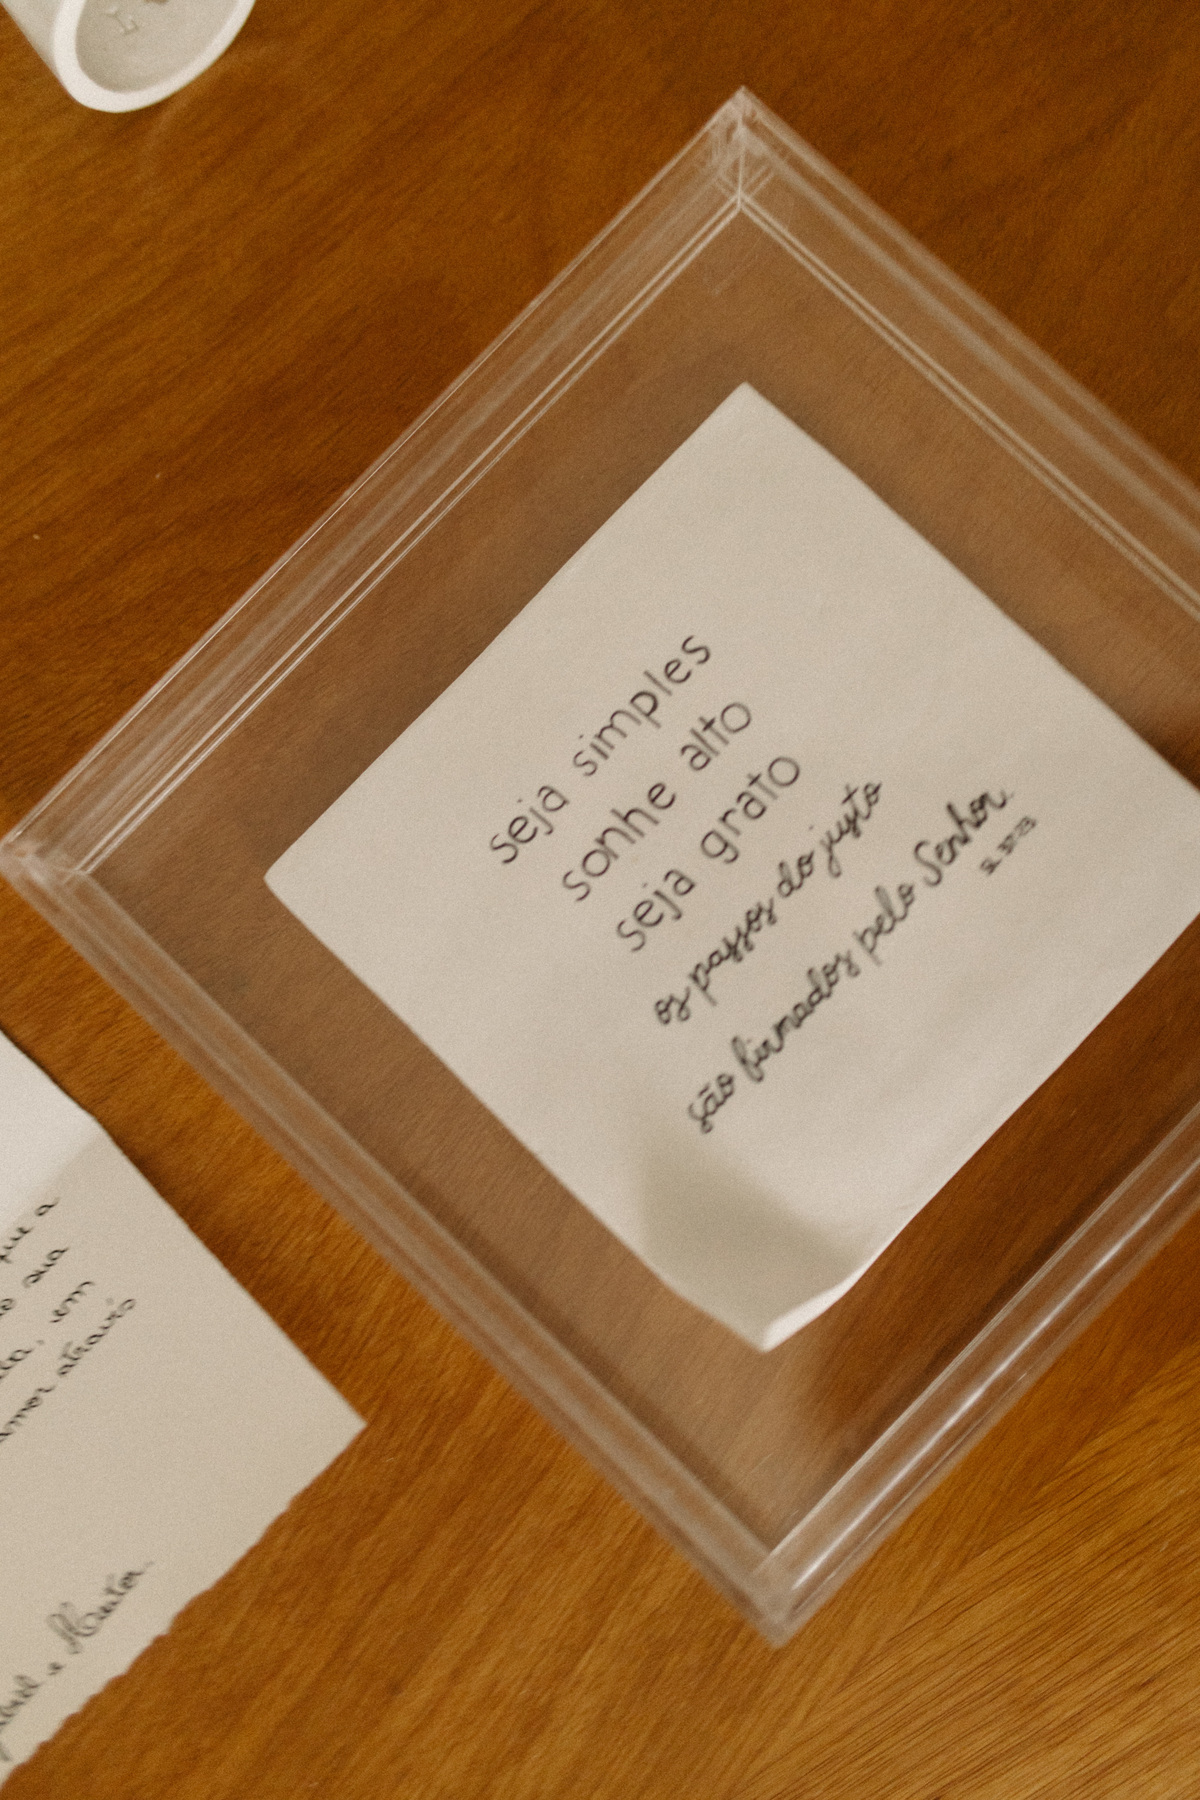 seja simples
sonhe alto
seja grato
os passos do justo
são firmados pelo Senhor.
SL 37:23
que a
sua
em
amor através
e Heitor.